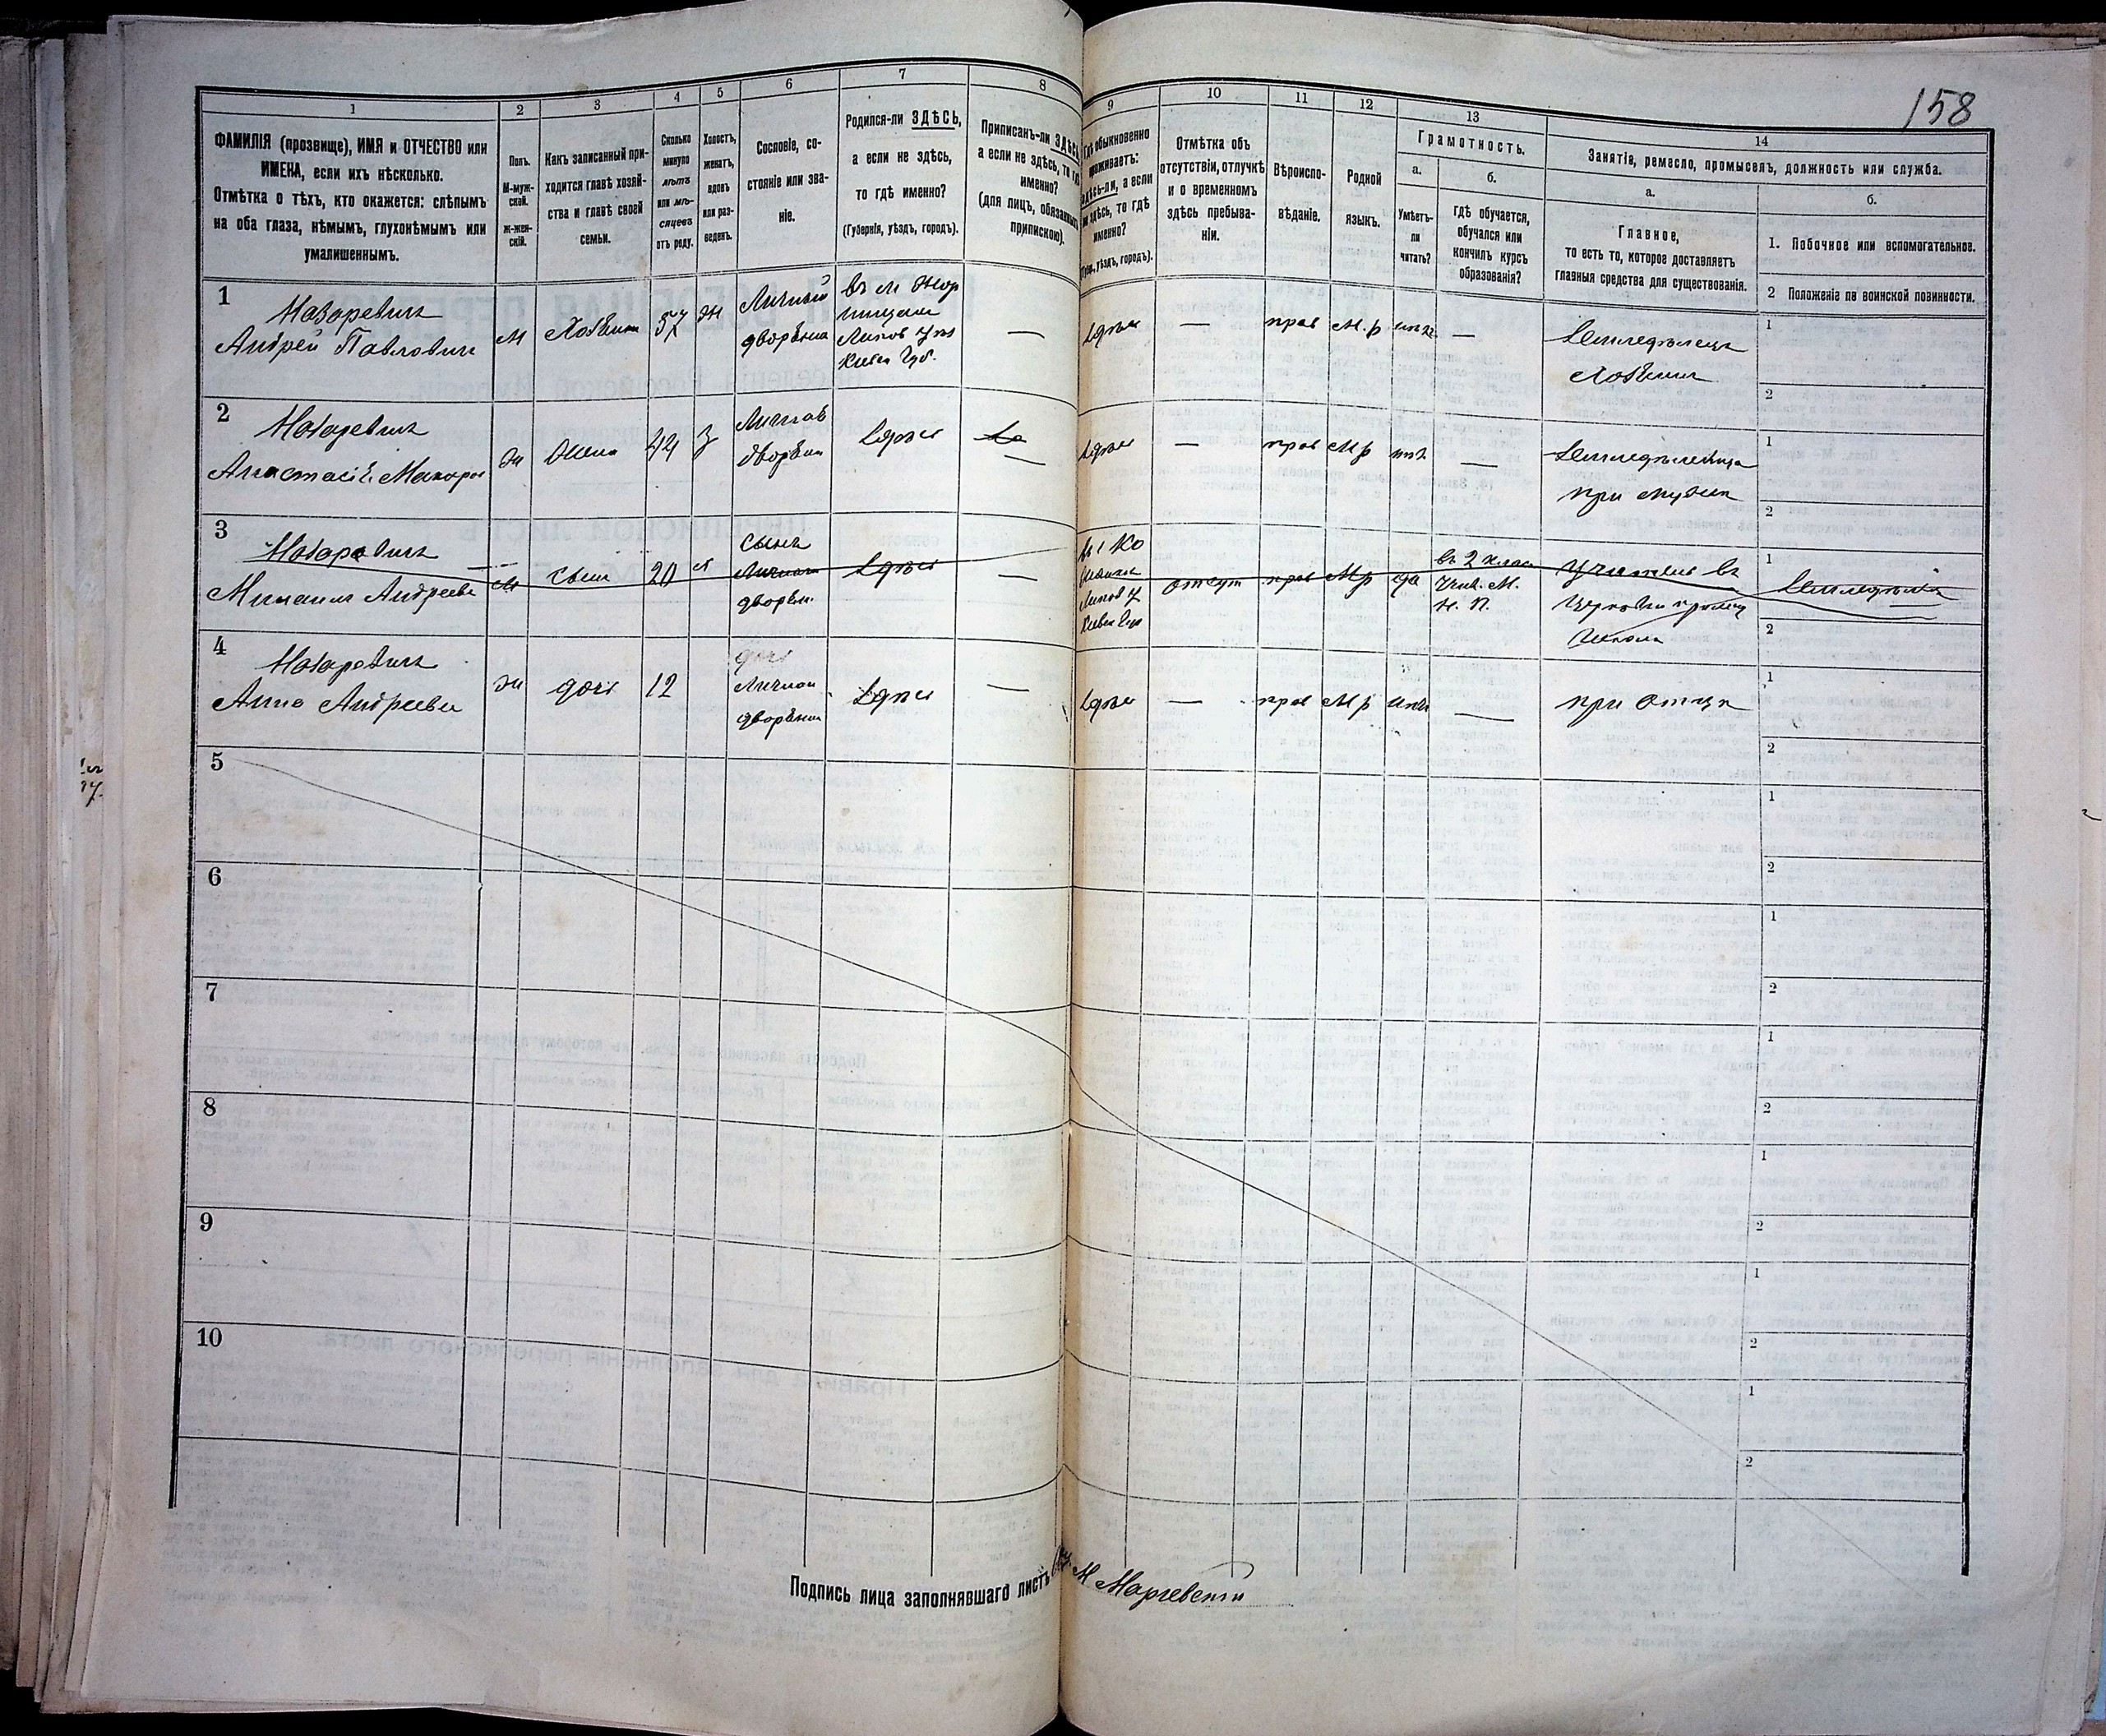 158
1 2 3 4 5 6 7 8 9 10 11 12 13 14
ФАМИЛІЯ (прозвище), ИМЯ и ОТЧЕСТВО или
ИМЕНА, если ихъ нѣсколько.
Отмѣтка о тѣхъ, кто окажется: слѣпымъ
на оба глаза, нѣмымъ, глухонѣмымъ или
умалишеннымъ.
Полъ.
М-муж-
ской.
ж-жен-
скій.
Какъ записанный при-
ходится главѣ хозяй-
ства и главѣ своей
семьи.
Сколько
минуло
лѣтъ
или мѣ-
сяцевъ
отъ роду.
Холостъ,
женатъ,
вдовъ
или раз-
веденъ.
Сословіе, со-
стояніе или зва-
ніе.
Родился-ли ЗДѢСЬ,
а если не здѣсь,
то гдѣ именно?
(Губернія, уѣздъ, городъ).
Приписанъ-ли ЗДѢСЬ,
а если не здѣсь, то гдѣ
именно?
(для лицъ, обязанныхъ
припискою).
Гдѣ обыкновенно
проживаетъ:
здѣсь-ли, а если
не здѣсь, то гдѣ
именно?
(Губ., уѣздъ, городъ).
Отмѣтка объ
отсутствіи, отлучкѣ
и о временномъ
здѣсь пребыва-
ніи.
Вѣроиспо-
вѣданіе.
Родной
языкъ.
Грамотность.
а.
Умѣетъ-
ли
читать?
б.
Гдѣ обучается,
обучался или
кончилъ курсъ
образованія?
Занятія, ремесло, промыселъ, должность или служба.
а.
Главное,
то есть то, которое доставляетъ
главныя средства для существованія.
б.
1. Побочное или вспомогательное.
2 Положеніе по воинской повинности.
1
Назаревичъ
Андрей Павлович
м
Хозяин
57
ж
Личный
дворянин
въ м Жор
нищам
Липов уѣз
Киев Губ.
—
здѣсь
—
прав
М. р
нѣт
—
Земледѣлецъ
Хозяин
1
2
2
Назаревичъ
Анастасія Макаров
ж
Жена
44
з
Личнаг
дворян
Здѣсь
—
здѣсь
—
прав
М р
нѣт
—
Земледѣлица
при мужѣ
1
2
3
Назаревичъ
Михаил Андреев
м
сын
20
х
сынъ
Личнаго
дворян.
Здѣсь
—
Липов у
Киев Губ
отсут
прав
М р
да
въ 2 клас
Учил. М.
Н. П.
Учитель въ
Школѣ
1
Земледѣліе
2
4
Назаревичъ
Анна Андреева
ж
дочь
12
дочь
Личнаго
дворянин
Здѣсь
—
здѣсь
—
прав
М р
нѣт
—
при отцѣ
1
2
5
1
2
6
1
2
7
1
2
8
1
2
9
1
2
10
1
2
Подпись лица заполнявшаго листъ